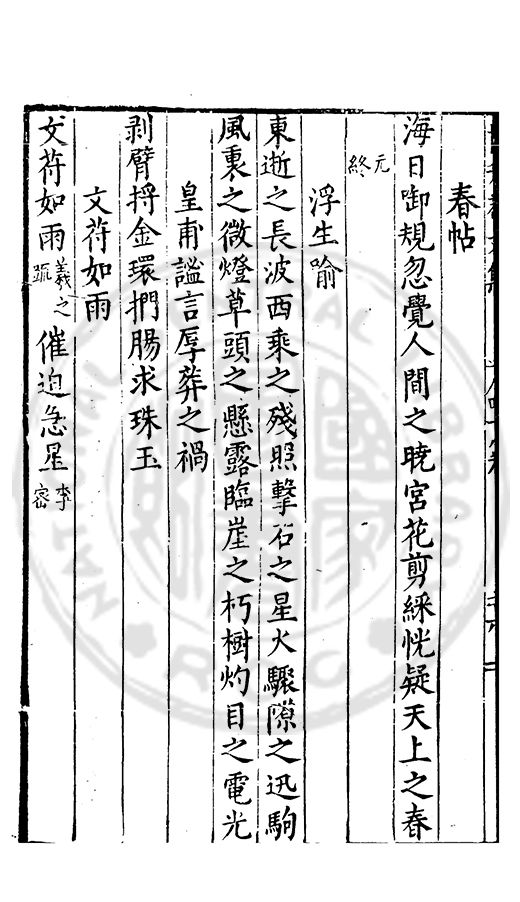 春帖
海日啣規忽覺人間之曉宮花剪綵恍疑天上之春
元
終
浮生喻
東逝之長波西乘之殘照擊石之星火驟隙之迅駒
風裏之微燈草頭之懸露臨崖之朽樹灼目之電光
皇甫謐言厚葬之禍
剥臂捋金環捫腸求珠玉
文符如雨
文符如雨 羲之疏 催迫急星 李密